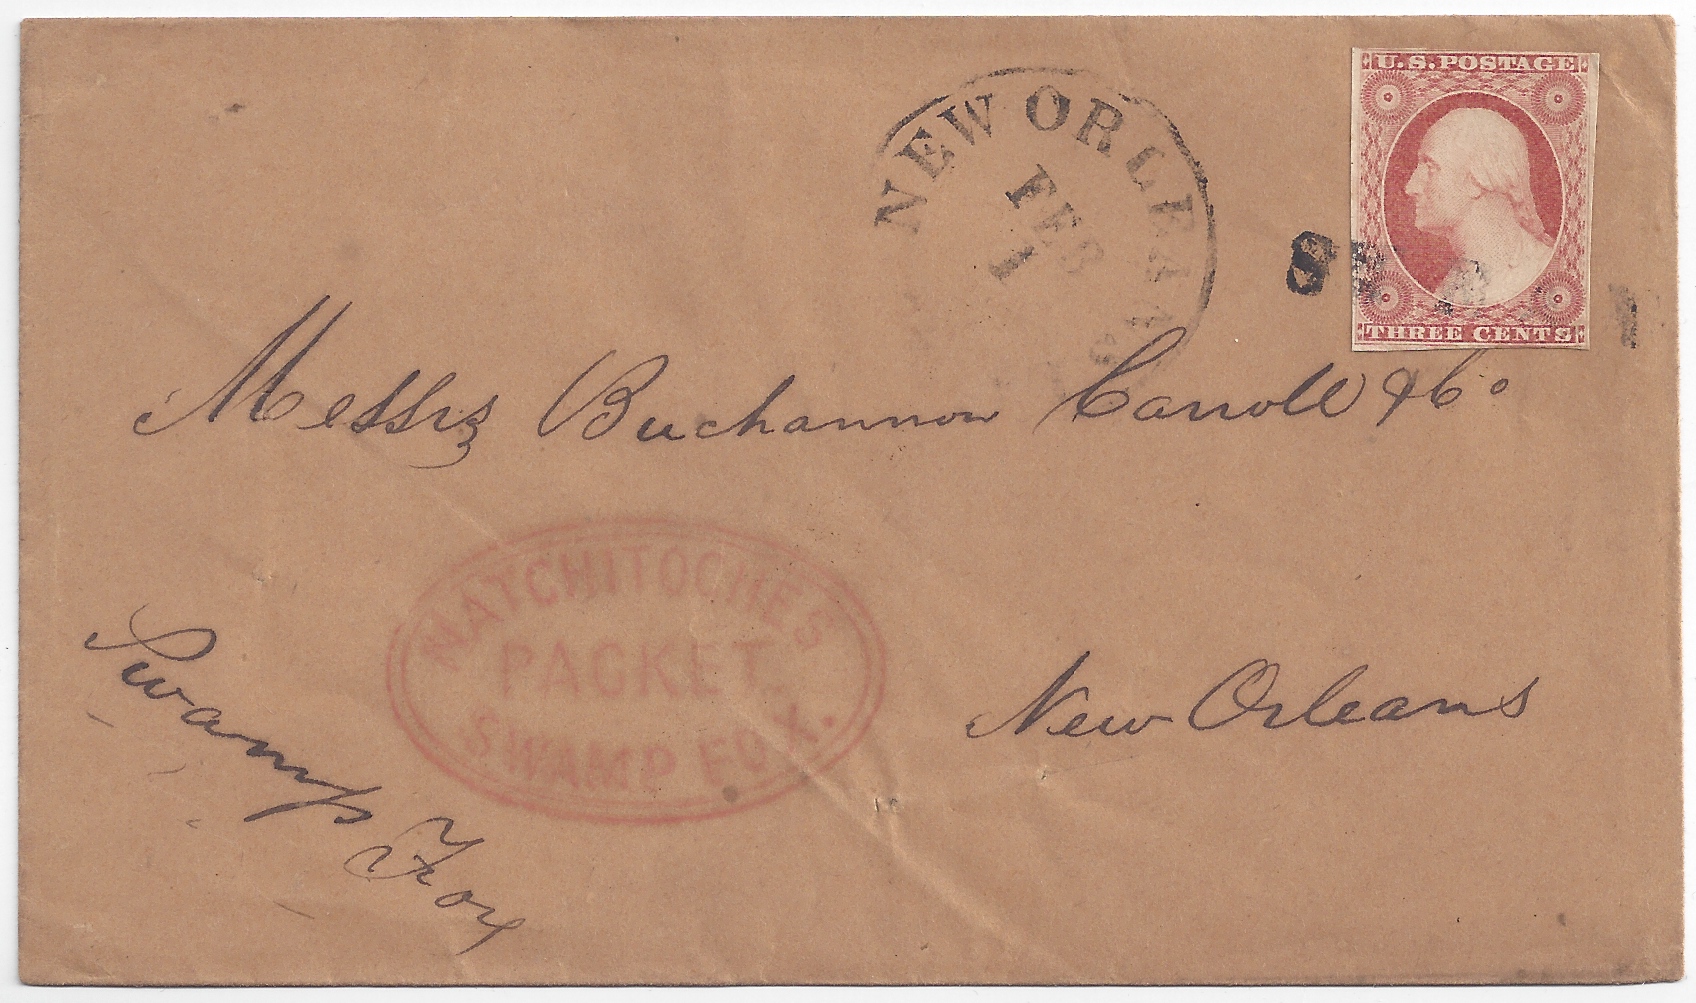 NEW ORLEANS
FEB
1
U.S. POSTAGE
THREE CENTS
Messrs Buchannon Carroll & Co
NATCHITOCHES
PACKET.
SWAMP FOX.
New Orleans
Swamp Fox